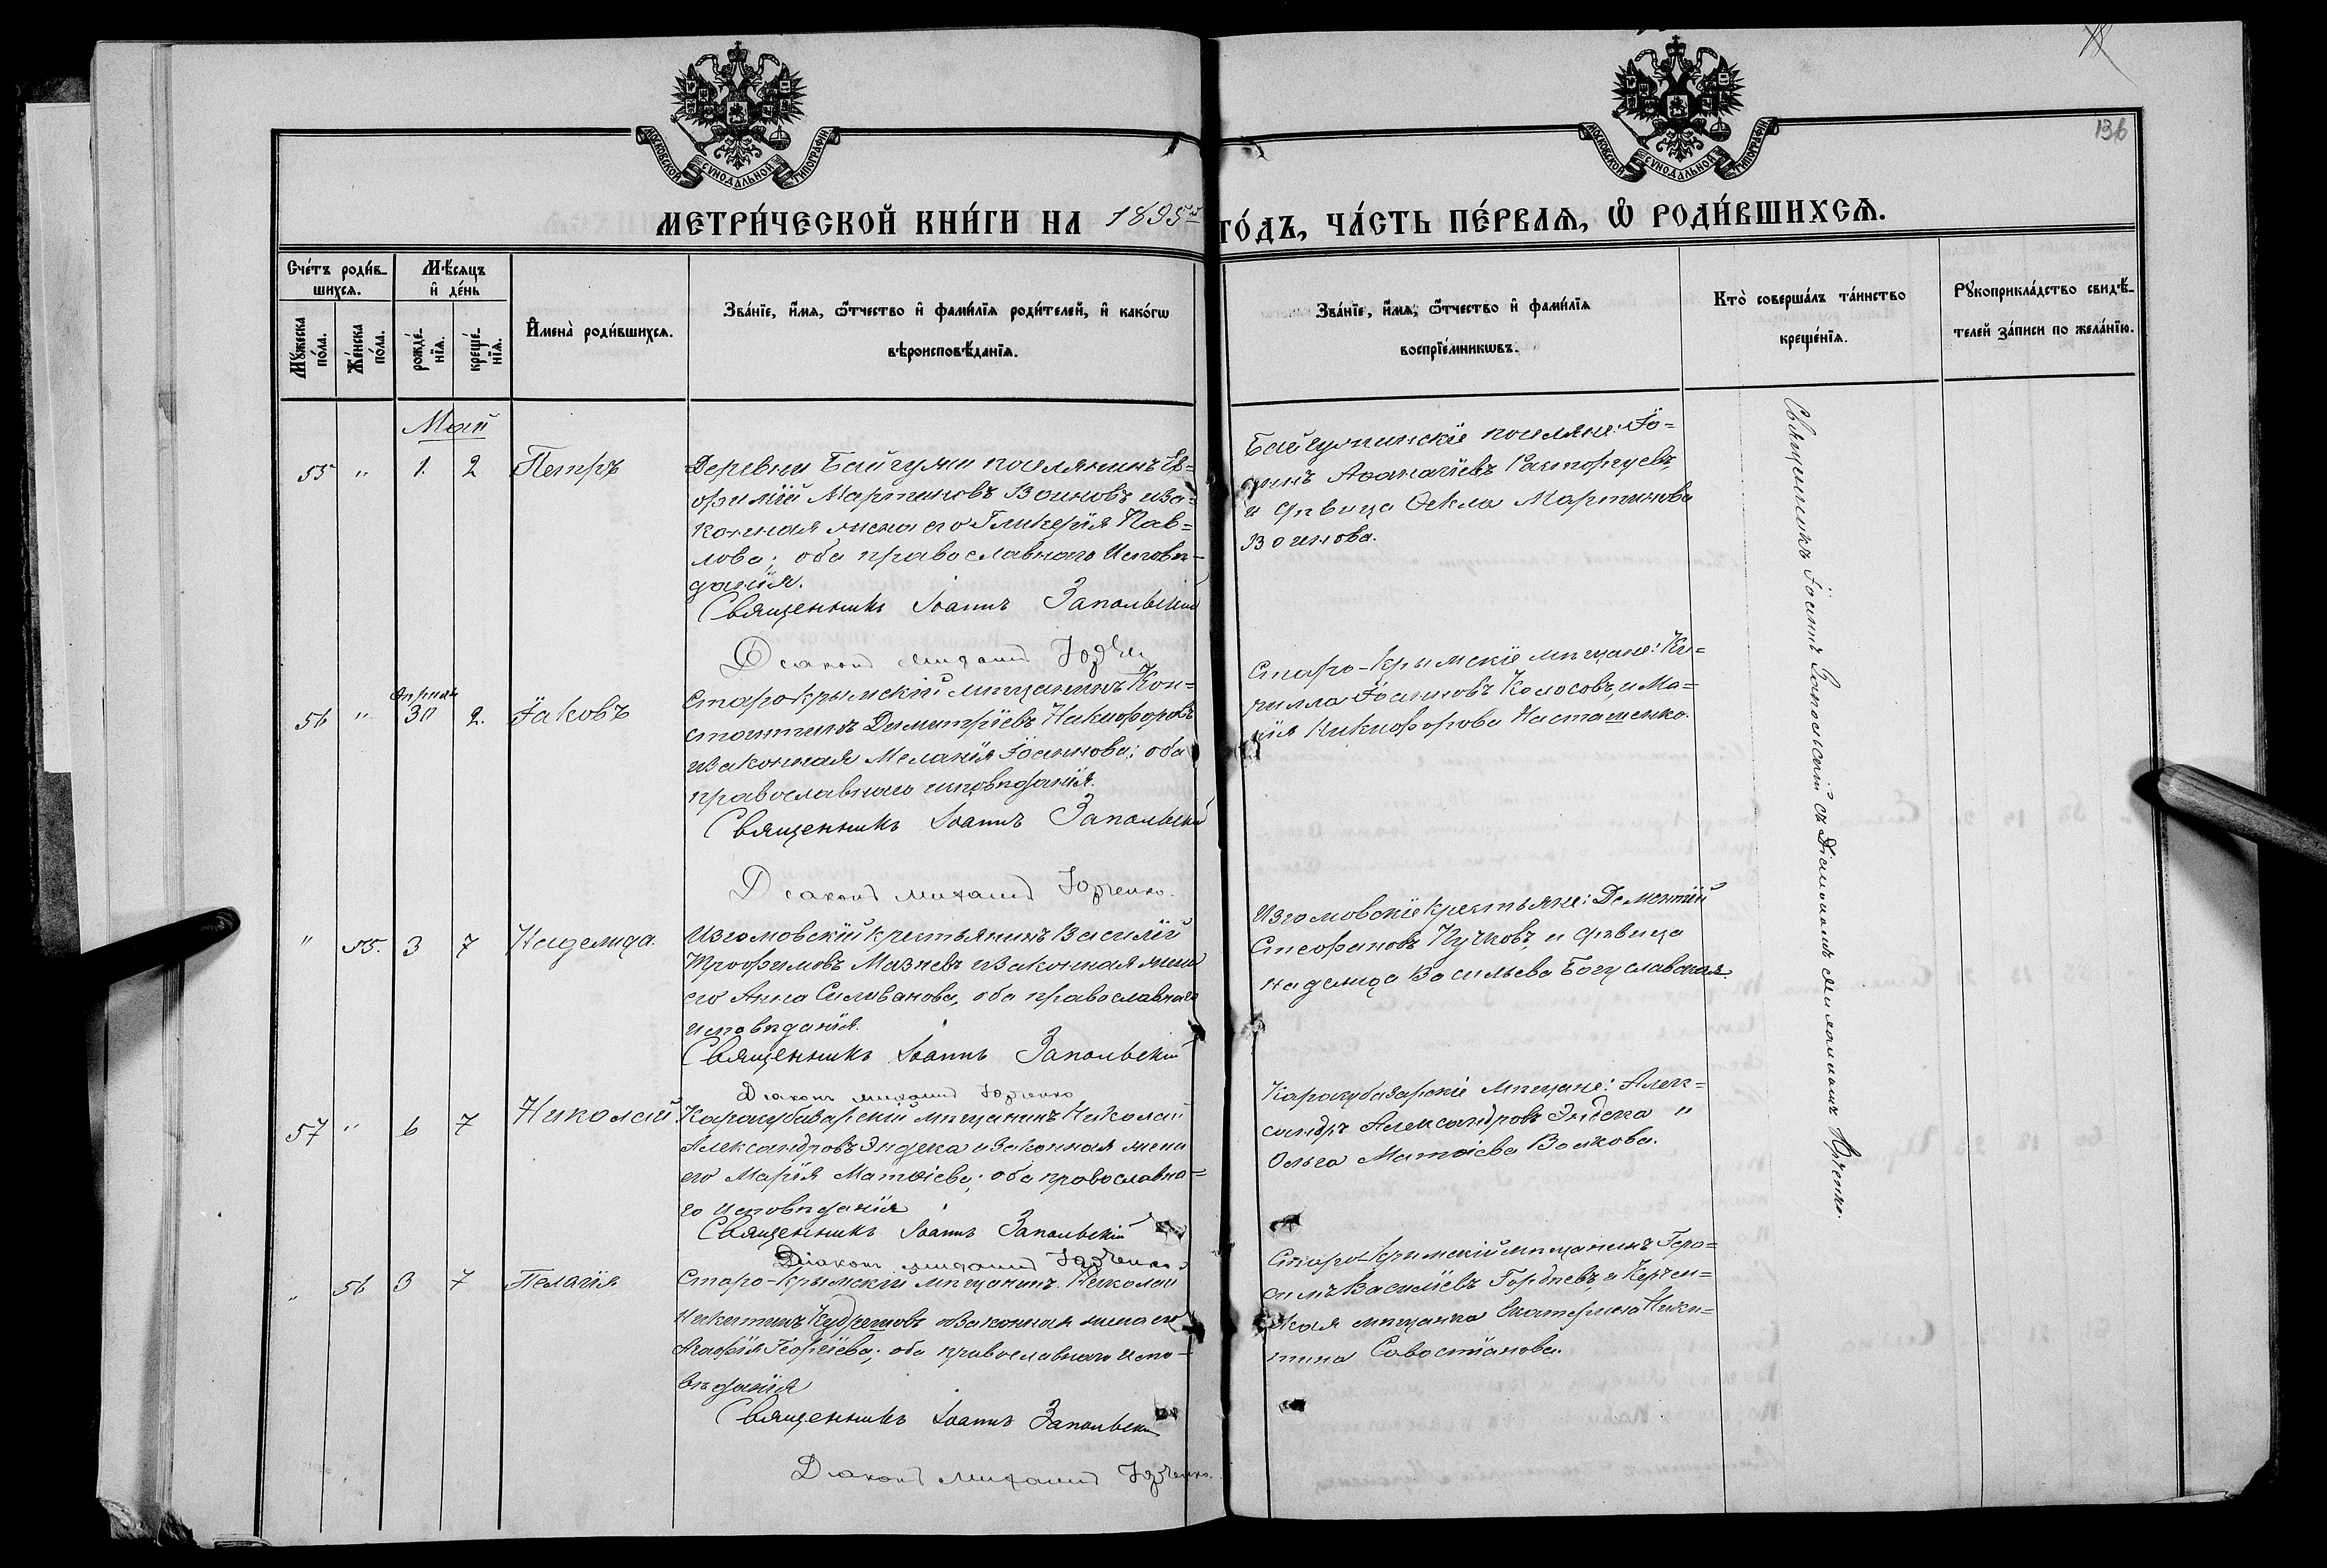 МОСКОВСКОЙ СѴНОДАЛЬНОЙ ТИПОГРАФІИ
МОСКОВСКОЙ СѴНОДАЛЬНОЙ ТИПОГРАФІИ
136
МЕТРИ́ЧЕСКОЙ КНИ́ГИ НА 1895й
ГО́ДЪ, ЧА́СТЬ ПЕ́РВАѦ, Ѡ РОДИ́ВШИХСѦ.
Сче́тъ роди́в-
шихсѧ.
Мѣ́сѧцъ
и҆ де́нь
Мꙋ́жеска
по́ла.
Же́нска
по́ла.
рожде́-
нїѧ.
креще́-
нїѧ.
И҆мена̀ роди́вшихсѧ.
Зва́нїе, и҆́мѧ, ѻ҆́тчество и҆ фами́лїѧ роди́телей, и҆ како́гѡ
вѣроисповѣ́данїѧ.
Зва́нїе, и҆́мѧ, ѻ҆́тчество и҆ фами́лїѧ
воспрїе́мникѡвъ.
Кто̀ соверша́лъ та́инство
креще́нїѧ.
Рꙋкоприкла́дство свидѣ́-
телей за́писи по жела́нїю.
Май
55 " 1. 2 Петръ
Деревни Байгучи поселянинъ Ев-
фимій Мартиновъ Воиновъ и за-
конная жена его Гликерія Пав=
лова; оба православнаго Исповѣ-
данія.
Священникъ Іоаннъ Запольскій
Діаконъ Михаилъ
Байгучинскіе поселяне: Іо=
аннъ Аѳанасіевъ Расторгуевъ
и дѣвица Ѳекла Мартинова
Воинова.
56 " Апрѣля 30 2. Іаковъ
Старокрымскій мѣщанинъ Кон=
стантинъ Димитріевъ Никифоровъ
и законная Меланія Іоаннова; оба
православнаго исповѣданія.
Священникъ Іоаннъ Запольскій
Діаконъ Михаилъ Юрченко.
Старо-Крымскіе мѣщане: Ки=
рилла Іоанновъ Колосовъ, и Ма=
рія Никифорова Насташенко.
" 55. 3 7 Надежда.
Изюмовскій крестьянинъ Василій
Трофимовъ Мазневъ и законная жена
его Анна Силиванова, оба православнаго
исповѣданія.
Священникъ Іоаннъ Запольскій
Діаконъ Михаилъ Юрченко
Изюмовскіе крестьяне: Дементій
Стефановъ Пучковъ, и дѣвица
Надежда Васильева Богуславская.
57 " 6 7 Николай
Карасубазарскій мѣщанинъ Николай
Александровъ Эндека и законная жена
его Марія Матѳіева; оба православна=
го исповѣданія
Священникъ Іоаннъ Запольскій
Діаконъ Михаилъ Юрченко.
Карасубазарскіе мѣщане: Алек=
сандръ Александровъ Эндека и
Ольга Матѳіева Волкова.
" 56 3 7 Пелагія
Старо-Крымскій мѣщанинъ Николай
Никитинъ Кудряшовъ и законная жена его
Агафія Георгіева; оба православнаго испо-
вѣданія
Священникъ Іоаннъ Запольскій
Діаконъ Михаилъ Юрченко.
Старо-Крымскій мѣщанинъ Гера=
симъ Василіевъ Гордѣевъ, и Керчен=
ская мѣщанка Екатерина Ники=
тина Савостіанова.
Священникъ Іоаннъ Запольскій съ Діакономъ Михаиломъ Юрченко.